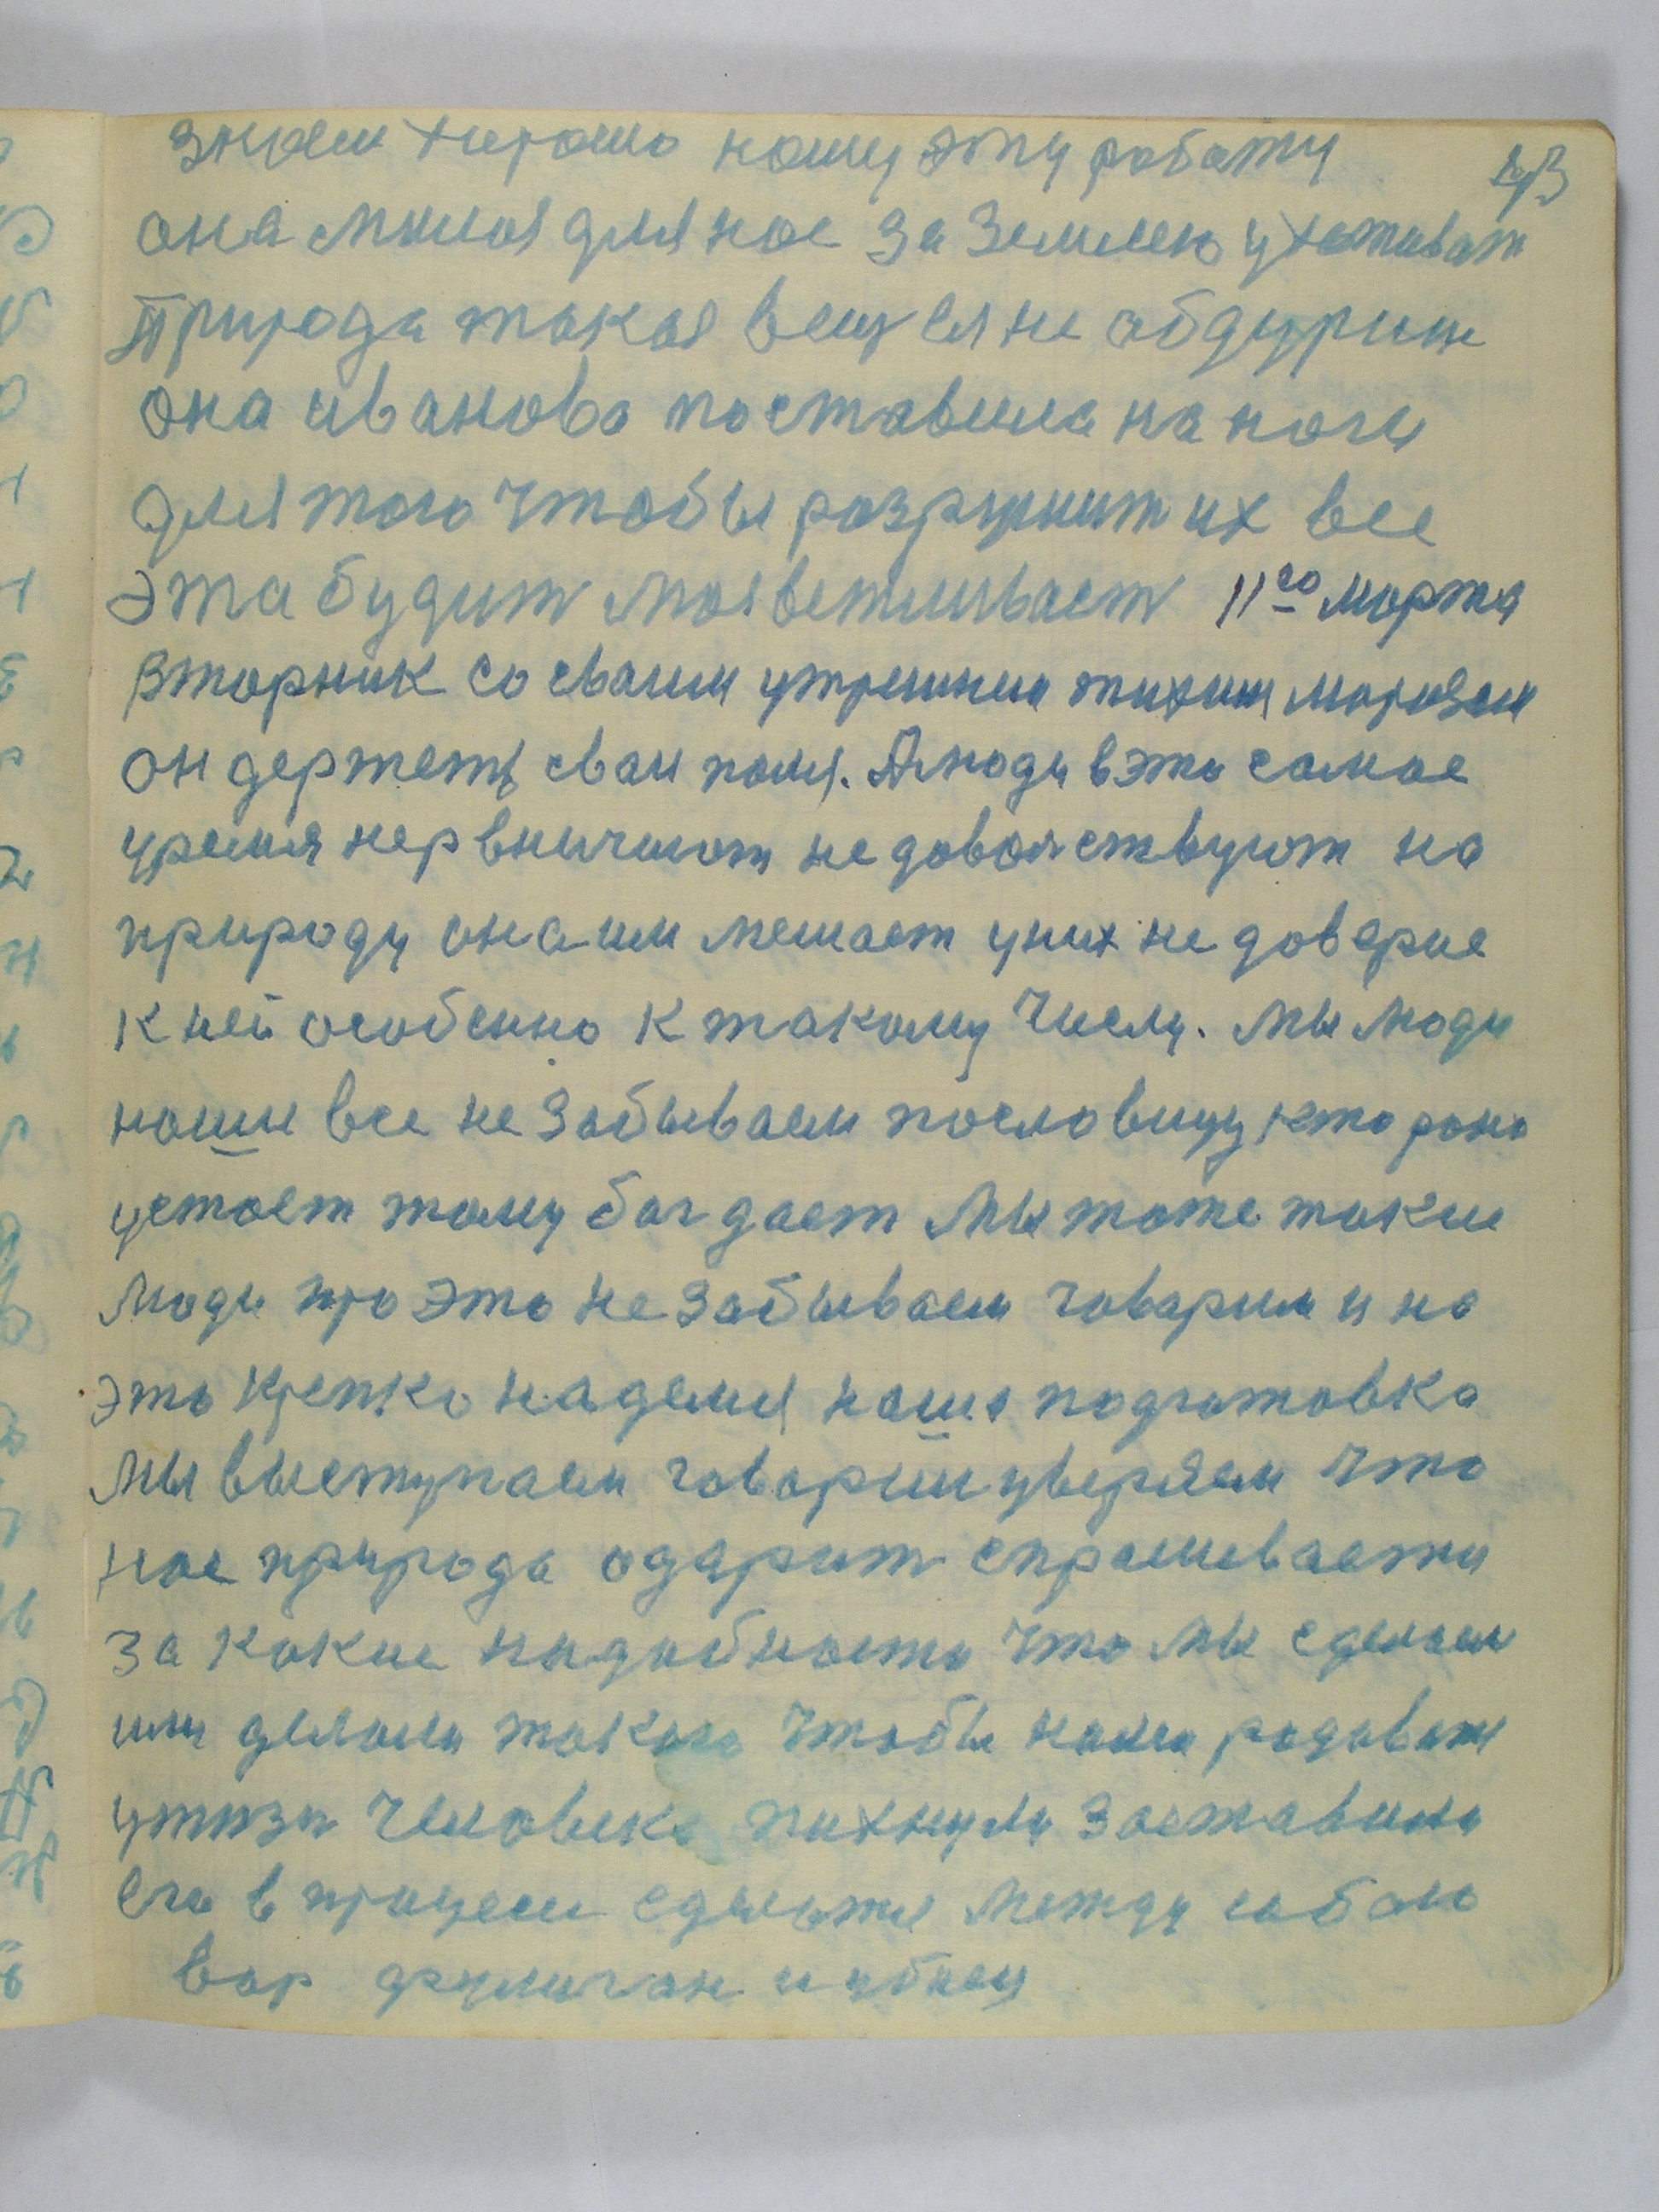 знаем хорошо нашу эту работу
43
она милая для нас за землею ухаживат
Природа такая вещ ея не абдуриш
она иванова поставила наноги
для того чтобы разрушит их все
эта будит моя ветливает 11го марта
Вторник со сваим утреним тихим морозам
он держеть сваи поля. А люди в это самае
уремя нервничиют не доволствуют на
природу она им мешает у них не доверие
к ней особенно к такому числу. Мы люди
наши все не забываем пословицу кто рано
устает тому бог дает Мы тоже такие
люди про это не забываем говарим и на
это крепко надемся наша подготовка
Мы выступаем говорим уверяем что
нас природа одарит спрашиваетя
за какие надобности что мы сделаем
или делаем такого чтобы нами радаватя
утизи человека пихнули заставили
его в процеси сделатя между сабою
вор хулиган и убиец